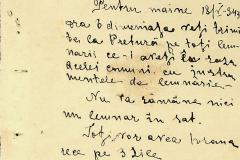 Pentru maine 18/V-947
ora 6 dimineața veți trimi
te la Pretură pe toți lem
narii ce-i aveți la raza
acelei comuni, cu instru
mentele de lemnărie.
Nu va rămâne nici
un lemnar în sat.
Toți vor avea hrana
rece pe 3 zile